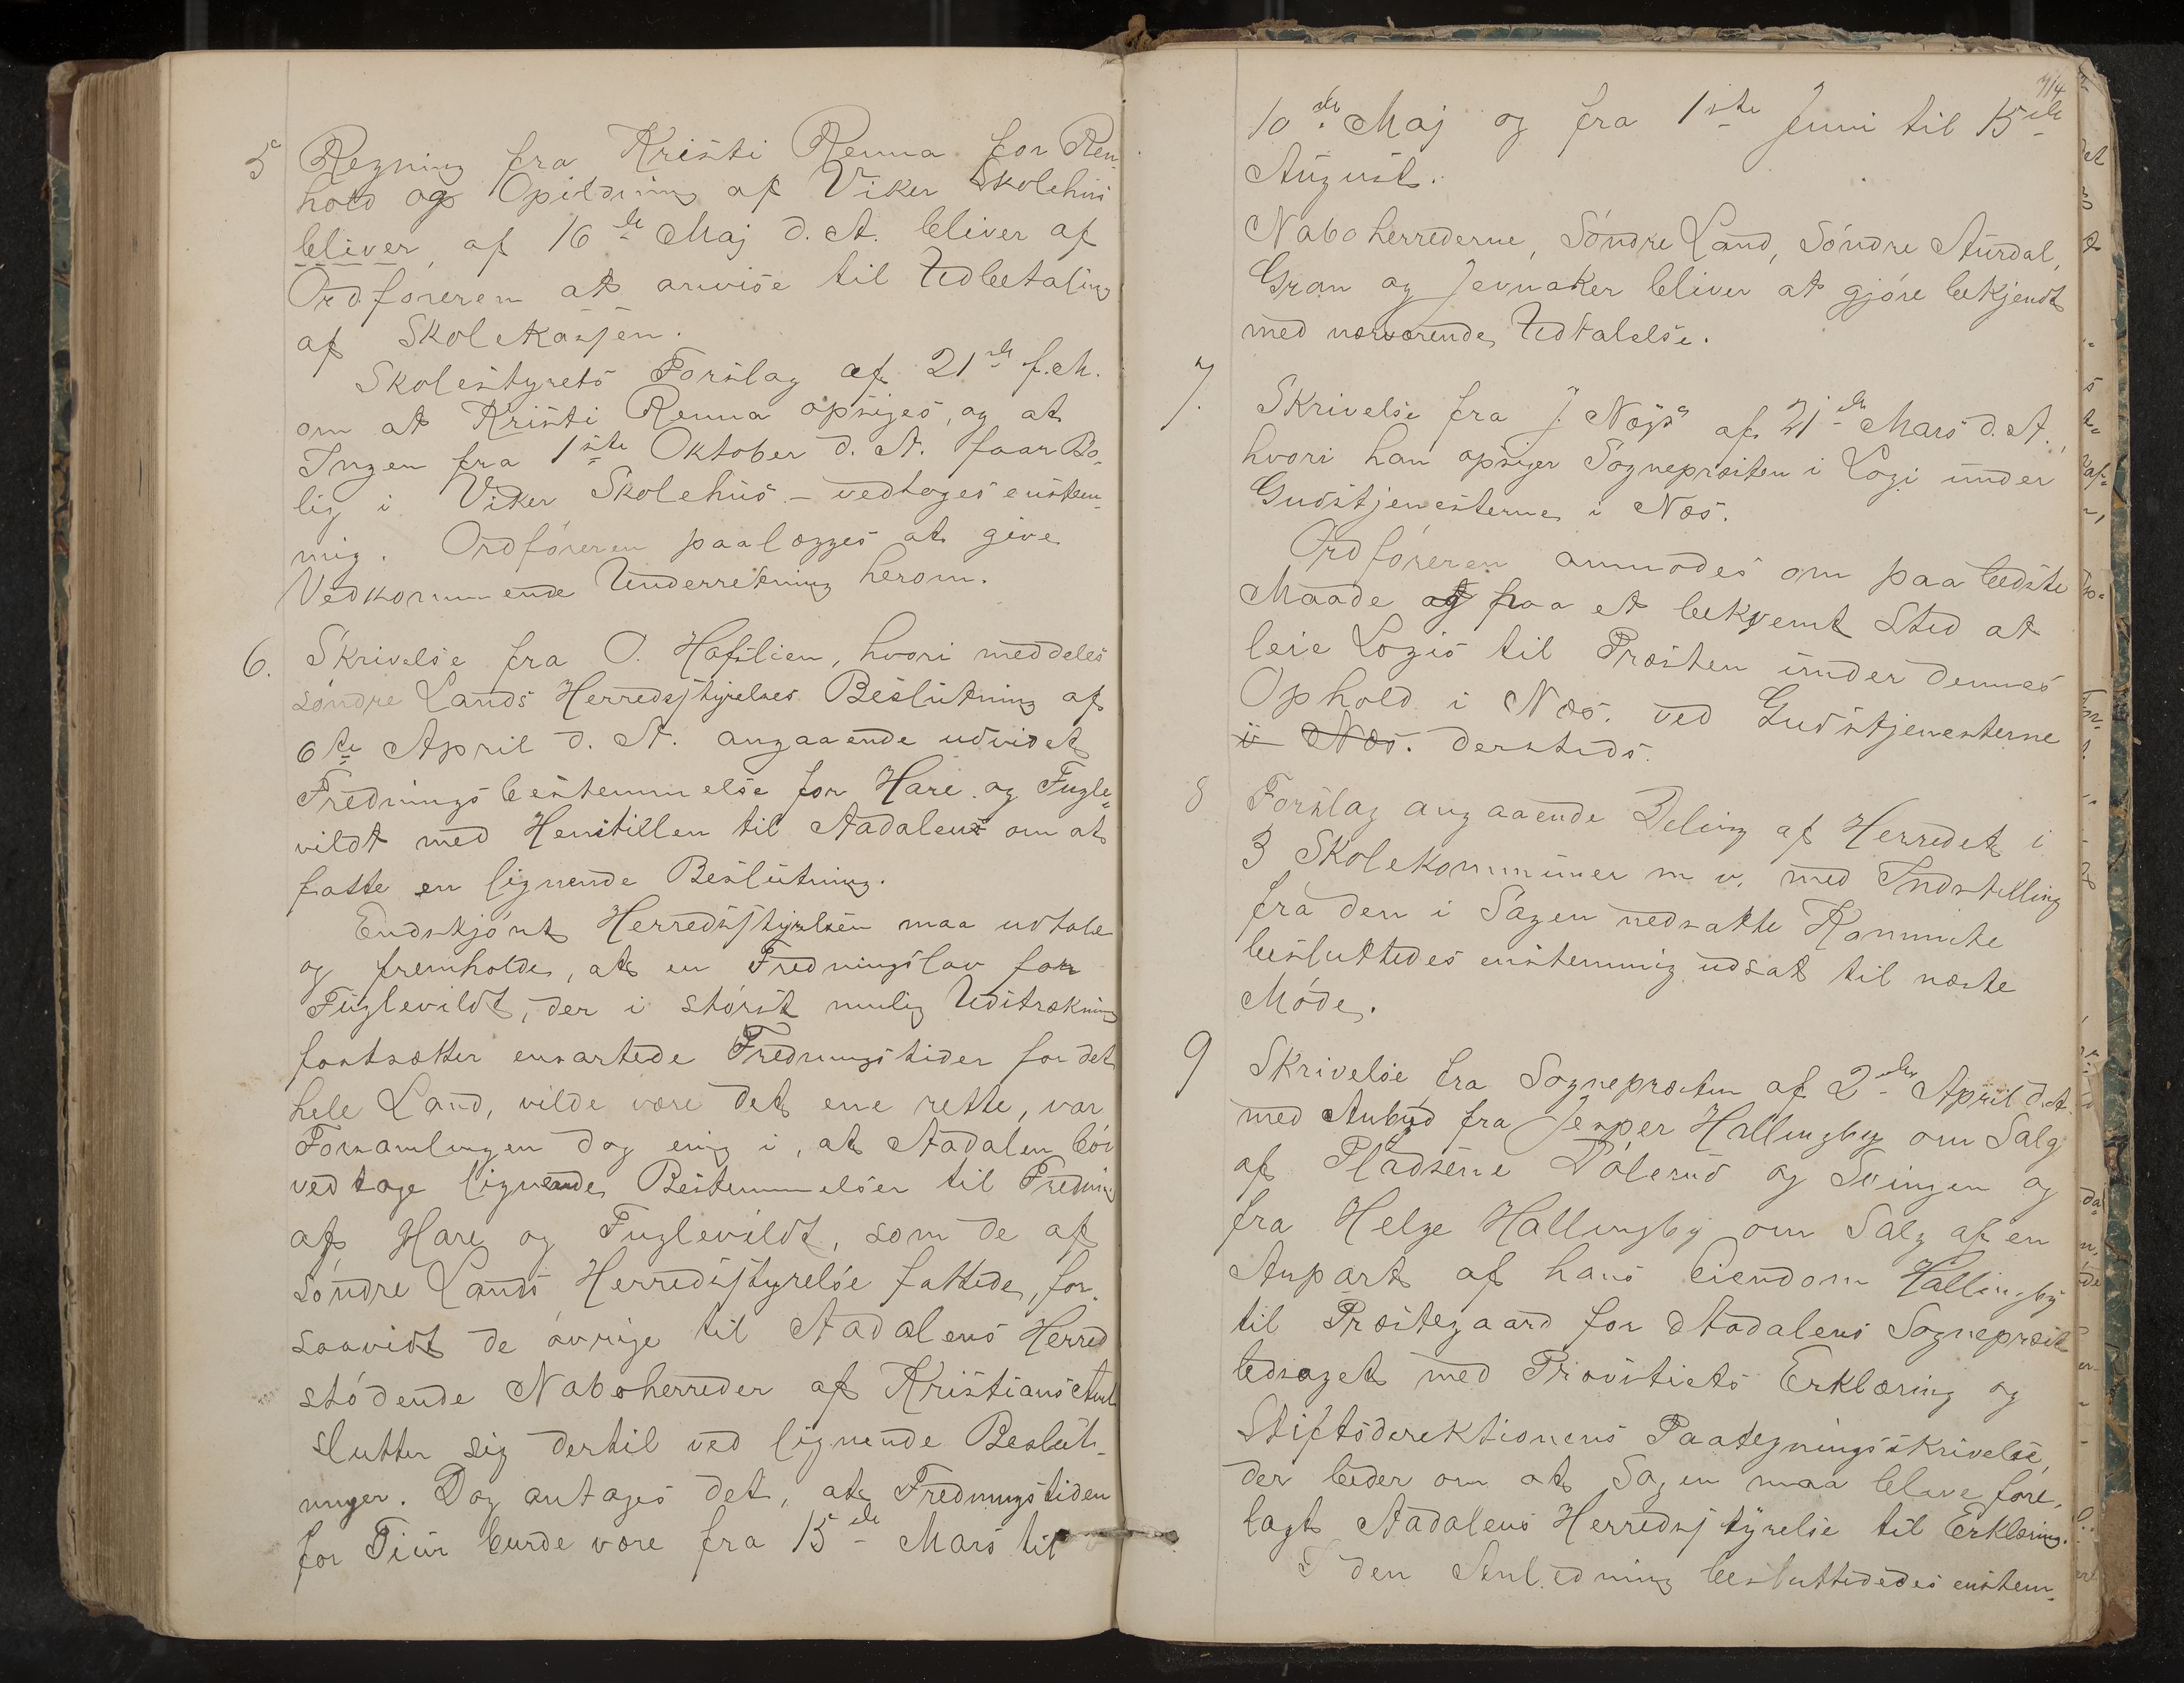 5 Regning fra Kristi Renna for Ren-
hold og Opildning af Viker Skolehus
bliver af 16de Maj d. A. bliver af
Ordføreren at anvise til Udbetaling
af Skolekassen.
Skolestyrets Forslag af 21de f. M.
om at Kristi Renna opsiges, og at
Ingen fra 1ste Oktober d. A. faar Bo-
lig i Viker Skolehus – vedtoges enstem-
mig. Ordføreren paalægges at give
Vedkommende Underretning herom.
6. Skrivelse fra O. Hafslien, hvori meddeles
søndre Lands Herredsstyrelses Beslutning af
6te April d. A. angaaende udvidet
Fredningsbestemmelse for Hare og Fugle-
vildt med Henstillen til Aadalens om at
fatte en lignende Beslutning.
Endskjønt Herredsstyrelsen maa udtale
og fremholde, at en Fredningslov for
Fuglevildt, der i størst mulig Udstrækning
fastsætter ensartede Fredningstider for det
hele Land, vilde være det ene rette, var
Forsamlingen dog enig i, at Aadalen bør
vedtage lignende Bestemmelser til Fredning
af Hare og Fuglevildt, som de af
søndre Lands Herredsstyrelse fattede, for-
saavidt de øvrige til Aadalens Herred
stødende Naboherreder af Kristians Amt
slutter sig dertil ved lignende Beslut-
ninger. Dog antages det, at Fredningstiden
for Tiur burde være fra 15de Mars til
714
10de Maj og fra 1ste Juni til 15de
August.
Naboherrederne, Søndre Land, Søndre Aurdal,
Gran og Jevnaker bliver at gjøre bekjendt
med nærværende Udtalelse.
7. Skrivelse fra J. Næss af 21de Mars d. A.,
hvori han opsiger Sognepræsten i Logi under
Gudstjenesterne i Næs.
Ordføreren anmodes om paa bedste
Maade og paa et bekvemt Sted at
leie Logis til Præsten under dennes
Ophold i Næs. ved Gudstjenesterne
i Næs. dersteds.
8 Forslag angaaende Deling af Herredet i
3 Skolekommuner m v. med Indstilling
fra den i Sagen nedsatte Kommite
besluttedes enstemmig udsat til næste
Møde.
9 Skrivelse fra Sognepræsten af 2den April d. A.
med Anbud fra Jesper Hallingby om Salg
af Pladsene Dølerud og Svingen og
fra Helge Hallingby om Salg af en
Anpart af hans Eiendom Hallingby
til Præstegaard for Aadalens Sognepræst
ledsaget med Provstiets Erklæring og
Stiftsderektionens Paategningsskrivelse,
der beder om at Sagen maa blive fore-
lagt Aadalens Herredsstyrelse til Erklæring.
I den Anledning besluttededes enstem-